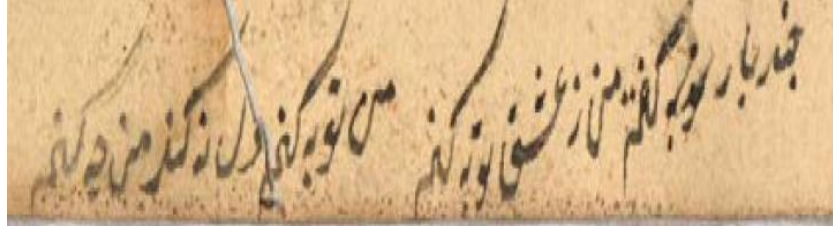 چند بار توبه گفتم من ز عشق توبه کنم من توبه کنم دل نه کند من چه کنم